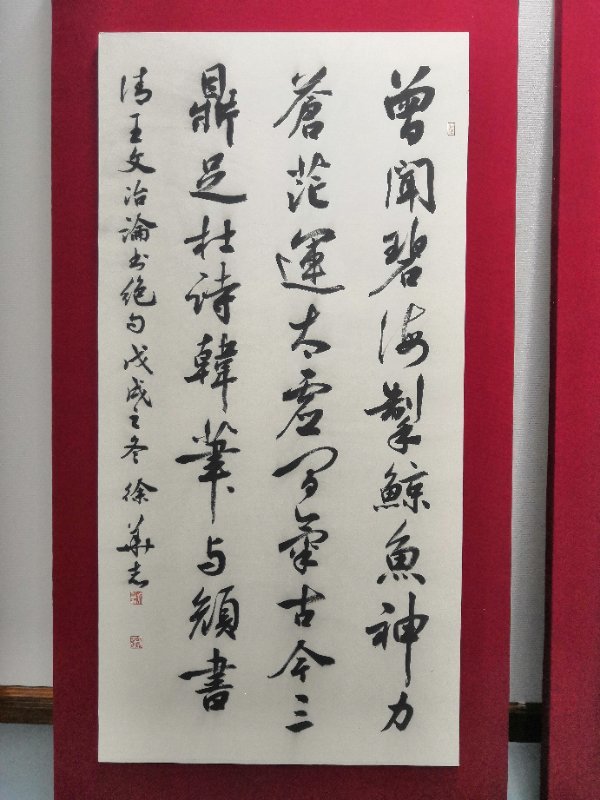 曾闻碧海掣鲸鱼神力
苍茫運太虚间氣古今三
鼎足杜诗韓筆与颜書
清王文治論书绝句戊戌之冬徐華志